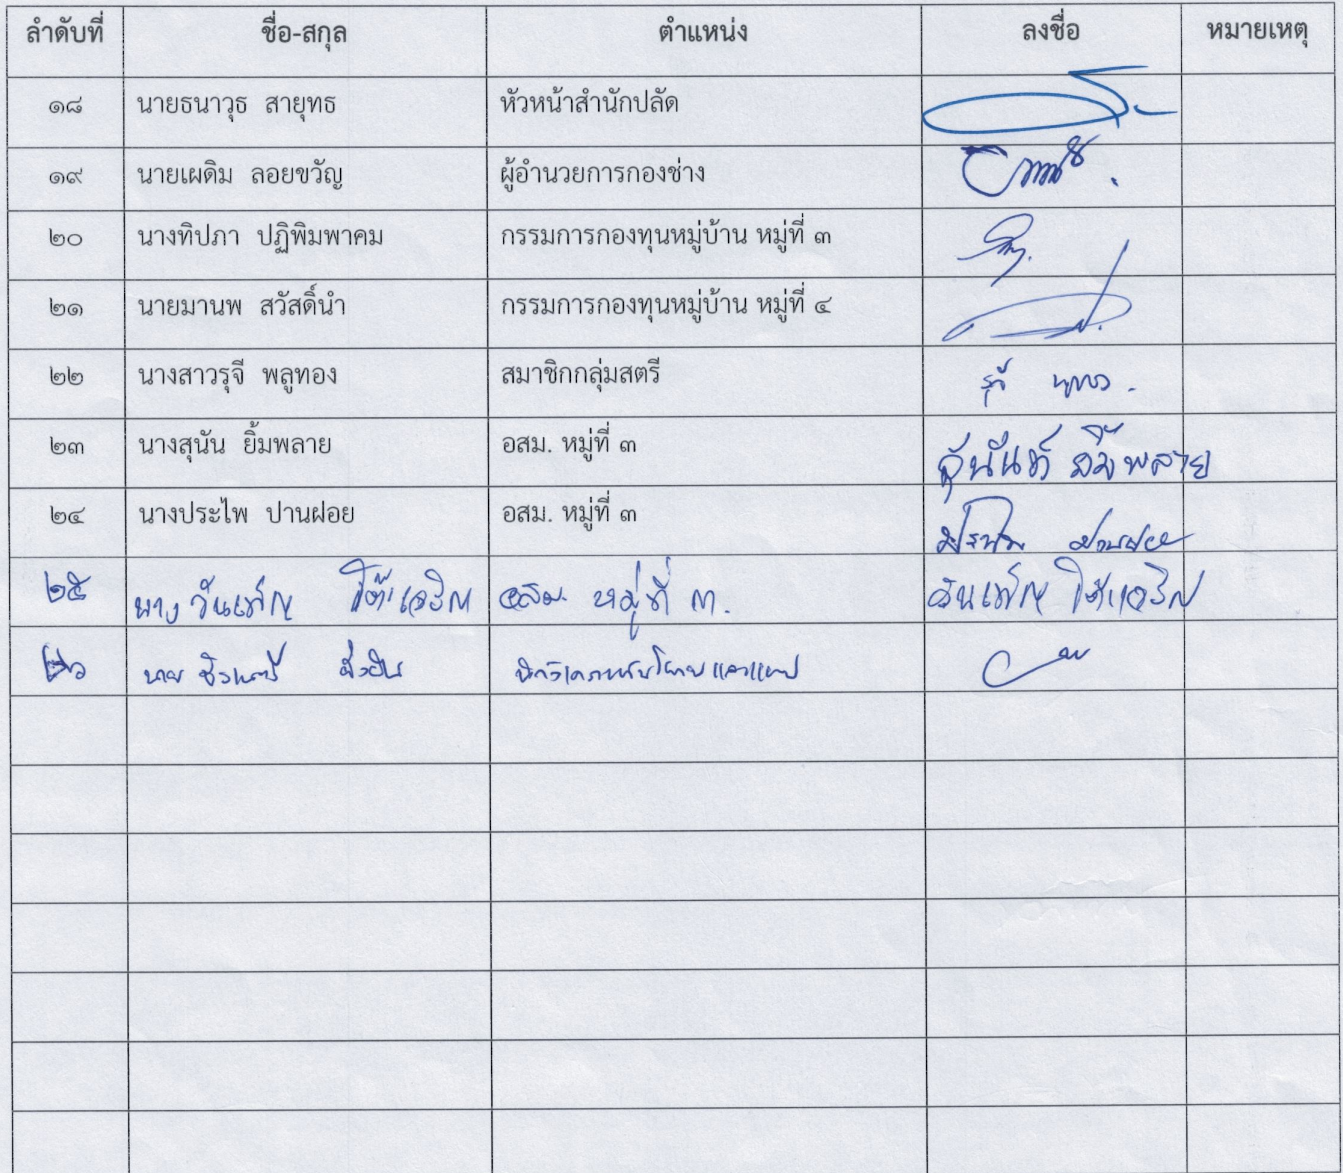 ลำดับที่ ชื่อ-สกุล ตำแหน่ง ลงชื่อ หมายเหตุ
๑๘ นายธนาวุธ สายุทธ หัวหน้าสำนักปลัด
๑๙ นายเผดิม ลอยขวัญ ผู้อำนวยการกองช่าง
๒๐ นางทิปภา ปฏิพิมพาคม กรรมการกองทุนหมู่บ้าน หมู่ที่ ๓
๒๑ นายมานพ สวัสดิ์นำ กรรมการกองทุนหมู่บ้าน หมู่ที่ ๔
๒๒ นางสาวรุจี พลูทอง สมาชิกกลุ่มสตรี
๒๓ นางสุนัน ยิ้มพลาย อสม. หมู่ที่ ๓ สุนันท์ ยิ้มพลาย
๒๔ นางประไพ ปานฝอย อสม. หมู่ที่ ๓ ประไพ ปานฝอย
๒๕ นาง วันเพ็ญ โต๊ะเจริญ อสม. หมู่ที่ ๓. วันเพ็ญ
๒๖ นาย